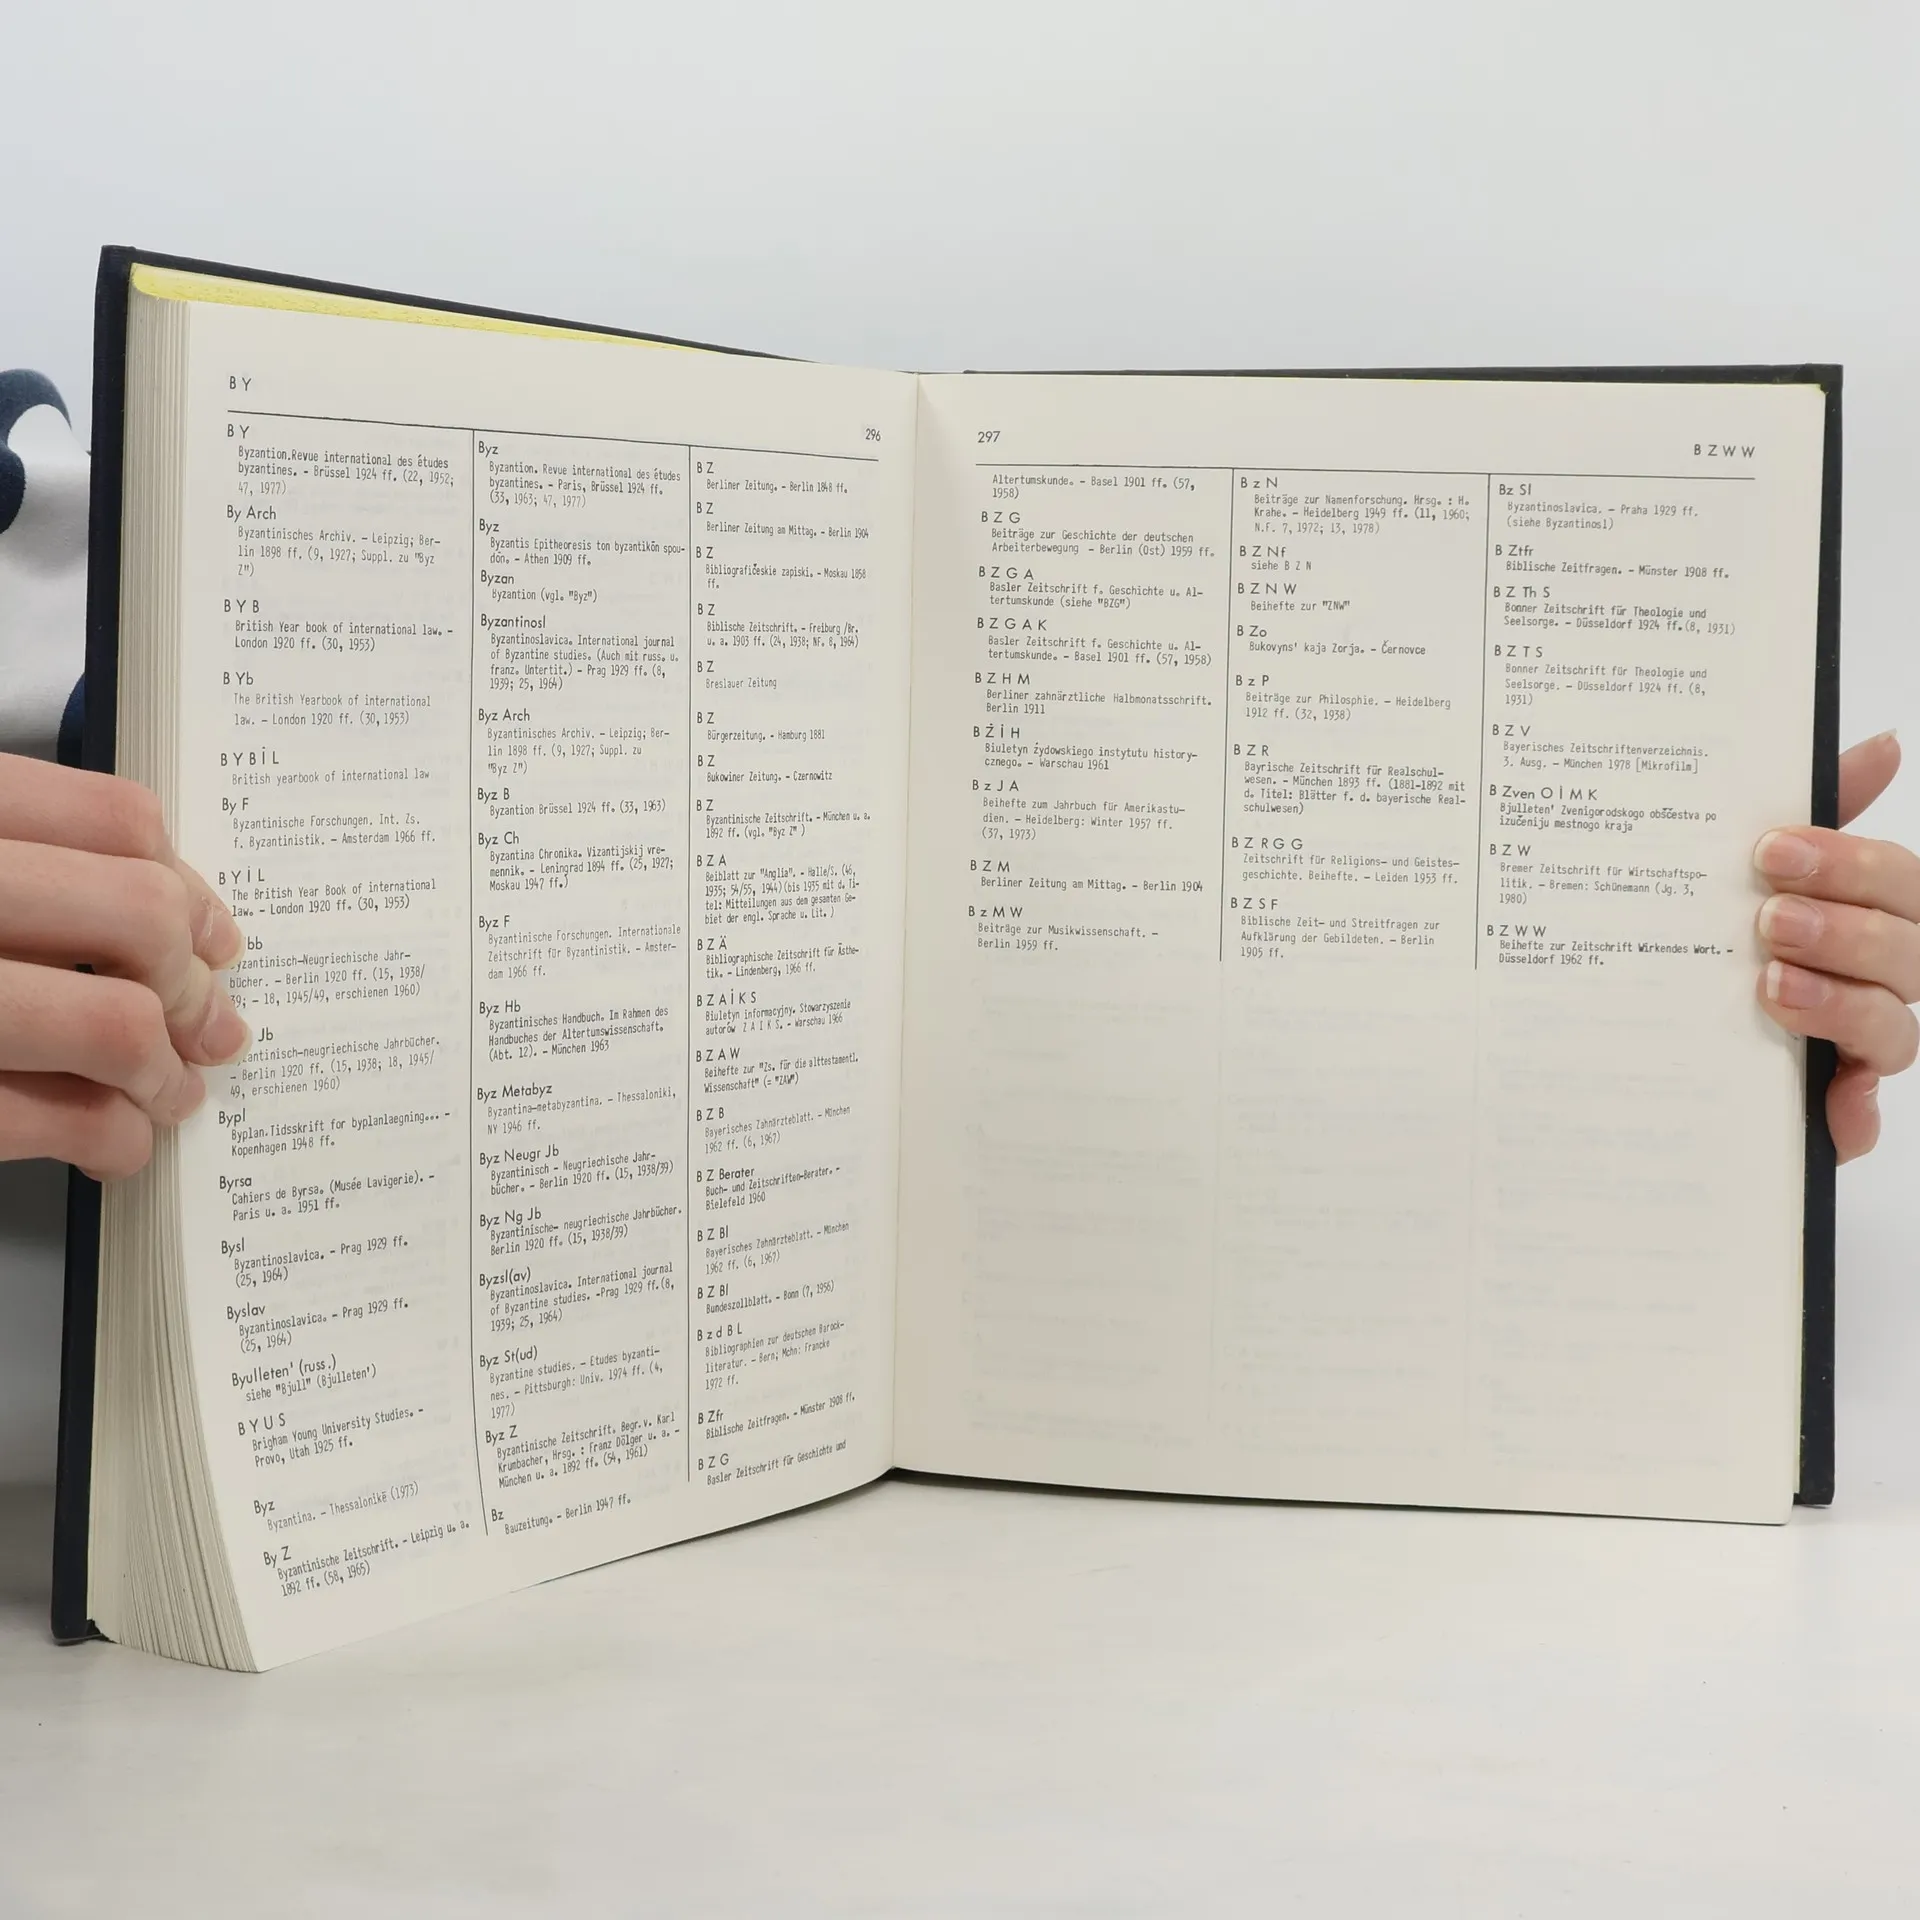 BY
296
BY
Byzantion.Revue international des études
byzantines. - Brüssel 1924 ff. (22, 1952;
47, 1977)
By Arch
Byzantinisches Archiv. - Leipzig; Ber-
lin 1898 ff. (9, 1927; Suppl. zu "Byz
Z")
B Y B
British Year book of international law. -
London 1920 ff. (30, 1953)
B Yb
The British Yearbook of international
law. - London 1920 ff. (30,1953)
B Y B İ L
British yearbook of international law
By F
Byzantinische Forschungen. Int. Zs.
f. Byzantinistik. - Amsterdam 1966 ff.
B Y İ L
The British Year Book of international
law. - London 1920 ff. (30, 1953)
bb
yzantinisch-Neugriechische Jahr-
bücher. - Berlin 1920 ff. (15, 1938/
39; - 18, 1945/49, erschienen 1960)
Jb
zantinisch-neugriechische Jahrbücher.
- Berlin 1920 ff. (15, 1938; 18, 1945/
49, erschienen 1960)
Bypl
Byplan.Tidsskrift for byplanlaegning... -
Kopenhagen 1948 ff.
Byrsa
Cahiers de Byrsa. (Musée Lavigerie). -
Paris u. a. 1951 ff.
Bysl
Byzantinoslavica. - Prag 1929 ff.
(25, 1964)
Byslav
Byzantinoslavica. - Prag 1929 ff.
(25, 1964)
Byulleten' (russ.)
siehe "Bjull" (Bjulleten')
B Y U S
Brigham Young University Studies. -
Provo, Utah 1925 ff.
Byz
Byzantina. - Thessalonikē (1973)
By Z
Byzantinische Zeitschrift. - Leipzig u. a.
1892 ff. (58, 1965)
Byz
Byzantion. Revue international des études
byzantines. - Paris, Brüssel 1924 ff.
(33, 1963; 47, 1977)
Byz
Byzantis Epitheoresis ton byzantikōn spou-
dōn. - Athen 1909 ff.
Byzan
Byzantion (vgl. "Byz")
Byzantinosl
Byzantinoslavica. International journal
of Byzantine studies. (Auch mit russ. u.
franz. Untertit.) - Prag 1929 ff. (8,
1939; 25, 1964)
Byz Arch
Byzantinisches Archiv. - Leipzig; Ber-
lin 1898 ff. (9, 1927; Suppl. zu
"Byz Z")
Byz B
Byzantion Brüssel 1924 ff. (33, 1963)
Byz Ch
Byzantina Chronika. Vizantijskij vre-
mennik. - Leningrad 1894 ff. (25, 1927;
Moskau 1947 ff.)
Byz F
Byzantinische Forschungen. Internationale
Zeitschrift für Byzantinistik. - Amster-
dam 1966 ff.
Byz Hb
Byzantinisches Handbuch. Im Rahmen des
Handbuches der Altertumswissenschaft.
(Abt. 12). - München 1963
Byz Metabyz
Byzantina-metabyzantina. - Thessaloniki,
NY 1946 ff.
Byz Neugr Jb
Byzantinisch - Neugriechische Jahr-
bücher. - Berlin 1920 ff. (15, 1938/39)
Byz Ng Jb
Byzantinische- neugriechische Jahrbücher.
Berlin 1920 ff. (15, 1938/39)
Byzsl(av)
Byzantinoslavica. International journal
of Byzantine studies. -Prag 1929 ff.(8,
1939; 25, 1964)
Byz St(ud)
Byzantine studies. - Etudes byzanti-
nes. - Pittsburgh: Univ. 1974 ff. (4,
1977)
Byz Z
Byzantinische Zeitschrift. Begr. v. Karl
Krumbacher, Hrsg. : Franz Dölger u. a. -
München u. a. 1892 ff. (54, 1961)
Bz
Bauzeitung. - Berlin 1947 ff.
B Z
Berliner Zeitung. - Berlin 1848 ff.
B Z
Berliner Zeitung am Mittag. - Berlin 1904
B Z
Bibliografičeskie zapiski. - Moskau 1858
ff.
B Z
Biblische Zeitschrift. - Freiburg /Br.
u. a. 1903 ff. (24, 1938; NF. 8, 1964)
B Z
Breslauer Zeitung
B Z
Bürgerzeitung. - Hamburg 1881
B Z
Bukowiner Zeitung. - Czernowitz
B Z
Byzantinische Zeitschrift. - München u. a.
1892 ff. (vgl. "Byz Z" )
B Z A
Beiblatt zur "Anglia". - Halle/S. (46,
1935; 54/55, 1944)(bis 1935 mit d. Ti-
tel: Mitteilungen aus dem gesamten Ge-
biet der engl. Sprache u. Lit. )
B Z Ä
Bibliographische Zeitschrift für Ästhe-
tik. - Lindenberg, 1966 ff.
B Z A İ K S
Biuletyn informacyjny. Stowarzyszenie
autorów Z A I K S. - Warschau 1966
B Z A W
Beihefte zur "Zs. für die alttestamentl.
Wissenschaft" (= "ZAW")
B Z B
Bayerisches Zahnärzteblatt. - München
1962 ff. (6, 1967)
B Z Berater
Buch- und Zeitschriften-Berater. -
Bielefeld 1960
B Z Bl
Bayerisches Zahnärzteblatt. - München
1962 ff. (6, 1967)
B Z Bl
Bundeszollblatt. - Bonn (7, 1956)
B z d B L
Bibliographien zur deutschen Barock-
literatur. - Bern; Mchn: Francke
1972 ff.
B Zfr
Biblische Zeitfragen. - Münster 1908 ff.
B Z G
Basler Zeitschrift für Geschichte und
297
B Z W W
Altertumskunde. - Basel 1901 ff. (57,
1958)
B Z G
Beiträge zur Geschichte der deutschen
Arbeiterbewegung - Berlin (Ost) 1959 ff.
B Z G A
Basler Zeitschrift f. Geschichte u. Al-
tertumskunde (siehe "BZG")
B Z G A K
Basler Zeitschrift f. Geschichte u. Al-
tertumskunde. - Basel 1901 ff. (57, 1958)
B Z H M
Berliner zahnärztliche Halbmonatsschrift.
Berlin 1911
B Ż İ H
Biuletyn żydowskiego instytutu history-
cznego. - Warschau 1961
B z J A
Beihefte zum Jahrbuch für Amerikastu-
dien. - Heidelberg: Winter 1957 ff.
(37, 1973)
B Z M
Berliner Zeitung am Mittag. - Berlin 1904
B z M W
Beiträge zur Musikwissenschaft. -
Berlin 1959 ff.
B z N
Beiträge zur Namenforschung. Hrsg. : H.
Krahe. - Heidelberg 1949 ff. (11, 1960;
N.F. 7, 1972; 13, 1978)
B Z Nf
siehe B Z N
B Z N W
Beihefte zur "ZNW"
B Zo
Bukovyns' kaja Zorja. - Černovce
B z P
Beiträge zur Philosphie. - Heidelberg
1912 ff. (32, 1938)
B Z R
Bayrische Zeitschrift für Realschul-
wesen. - München 1893 ff. (1881-1892 mit
d. Titel: Blätter f. d. bayerische Real-
schulwesen)
B Z R G G
Zeitschrift für Religions- und Geistes-
geschichte. Beihefte. - Leiden 1953 ff.
B Z S F
Biblische Zeit- und Streitfragen zur
Aufklärung der Gebildeten. - Berlin
1905 ff.
Bz Sl
Byzantinoslavica. - Praha 1929 ff.
(siehe Byzantinosl)
B Ztfr
Biblische Zeitfragen. - Münster 1908 ff.
B Z Th S
Bonner Zeitschrift für Theologie und
Seelsorge. - Düsseldorf 1924 ff.(8, 1931)
B Z T S
Bonner Zeitschrift für Theologie und
Seelsorge. - Düsseldorf 1924 ff. (8,
1931)
B Z V
Bayerisches Zeitschriftenverzeichnis.
3. Ausg. - München 1978 [Mikrofilm]
B Zven O İ M K
Bjulleten' Zvenigorodskogo obščestva po
izučeniju mestnogo kraja
B Z W
Bremer Zeitschrift für Wirtschaftspo-
litik. - Bremen: Schünemann (Jg. 3,
1980)
B Z W W
Beihefte zur Zeitschrift Wirkendes Wort. -
Düsseldorf 1962 ff.